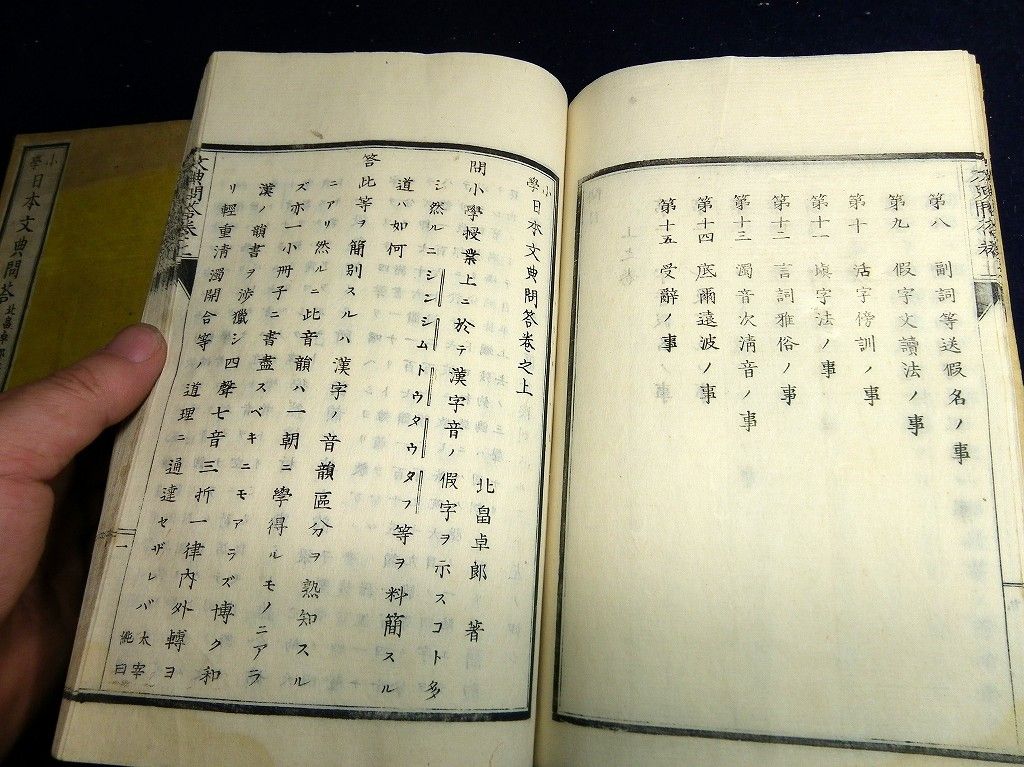 第八 副詞等送假名ノ事
第九 假字文讀法ノ事
第十 活字傍訓ノ事
第十一 填字法ノ事
第十二 言詞雅俗ノ事
第十三 濁音次淸音ノ事
第十四 底爾遠波ノ事
第十五 受辭ノ事
小學日本文典問答卷之上
北畠卓郎 著
問小學授業上ニ於テ漢字音ノ假字ヲ示スコト多
シ然ルニシンシムトウタウタフ等ヲ料簡スル
道ハ如何
答此等ヲ簡別スルハ漢字ノ音韻區分ヲ熟知スル
ニアリ然ルニ此音韻ハ一朝ニ學得ルモノニアラ
ズ亦一小冊子ニ書盡スベキニモアラズ博ク和
漢ノ韻書ヲ渉獵シ四聲七音三折一律內外轉ヨ
リ輕重清濁開合等ノ道理ニ通達セザレバ太宰純曰
一
小學日本文典問答